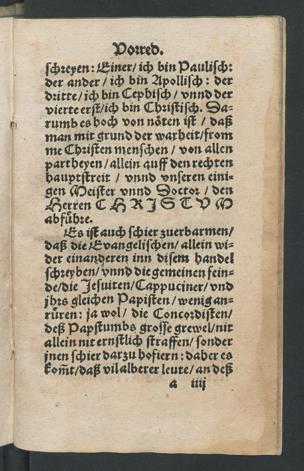 Vorred.
schreyen: Einer/ ich bin Paulisch:
der ander/ ich bin Apollisch: der
dritte/ ich bin Cephisch/ vnnd der
vierte erst/ ich bin Christisch. Da-
rumb es hoch von nöten ist/ daß
man mit grund der warheit/ from
me Christen menschen/ von allen
partheyen/ allein auff den rechten
hauptstreit/ vnnd vnseren eini-
gen Meister vnnd Doctor/ den
Herren CHRISTVM
abführe.
Es ist auch schier zuerbarmen/
daß die Euangelischen/ allein wi-
der einanderen inn disem handel
schreyben/ vnnd die gemeinen fein-
de/ die Jesuiten/ Cappuciner/ vnd
jhrs gleichen Papisten/ wenig an-
rüren: ja wol/ die Concordisten/
deß Papstumbs grosse grewel/ nit
allein nit ernstlich straffen/ sonder
jnen schier darzu hofieren: daher es
kom̃t/ daß vil alberer leute/ an deß
a iiij